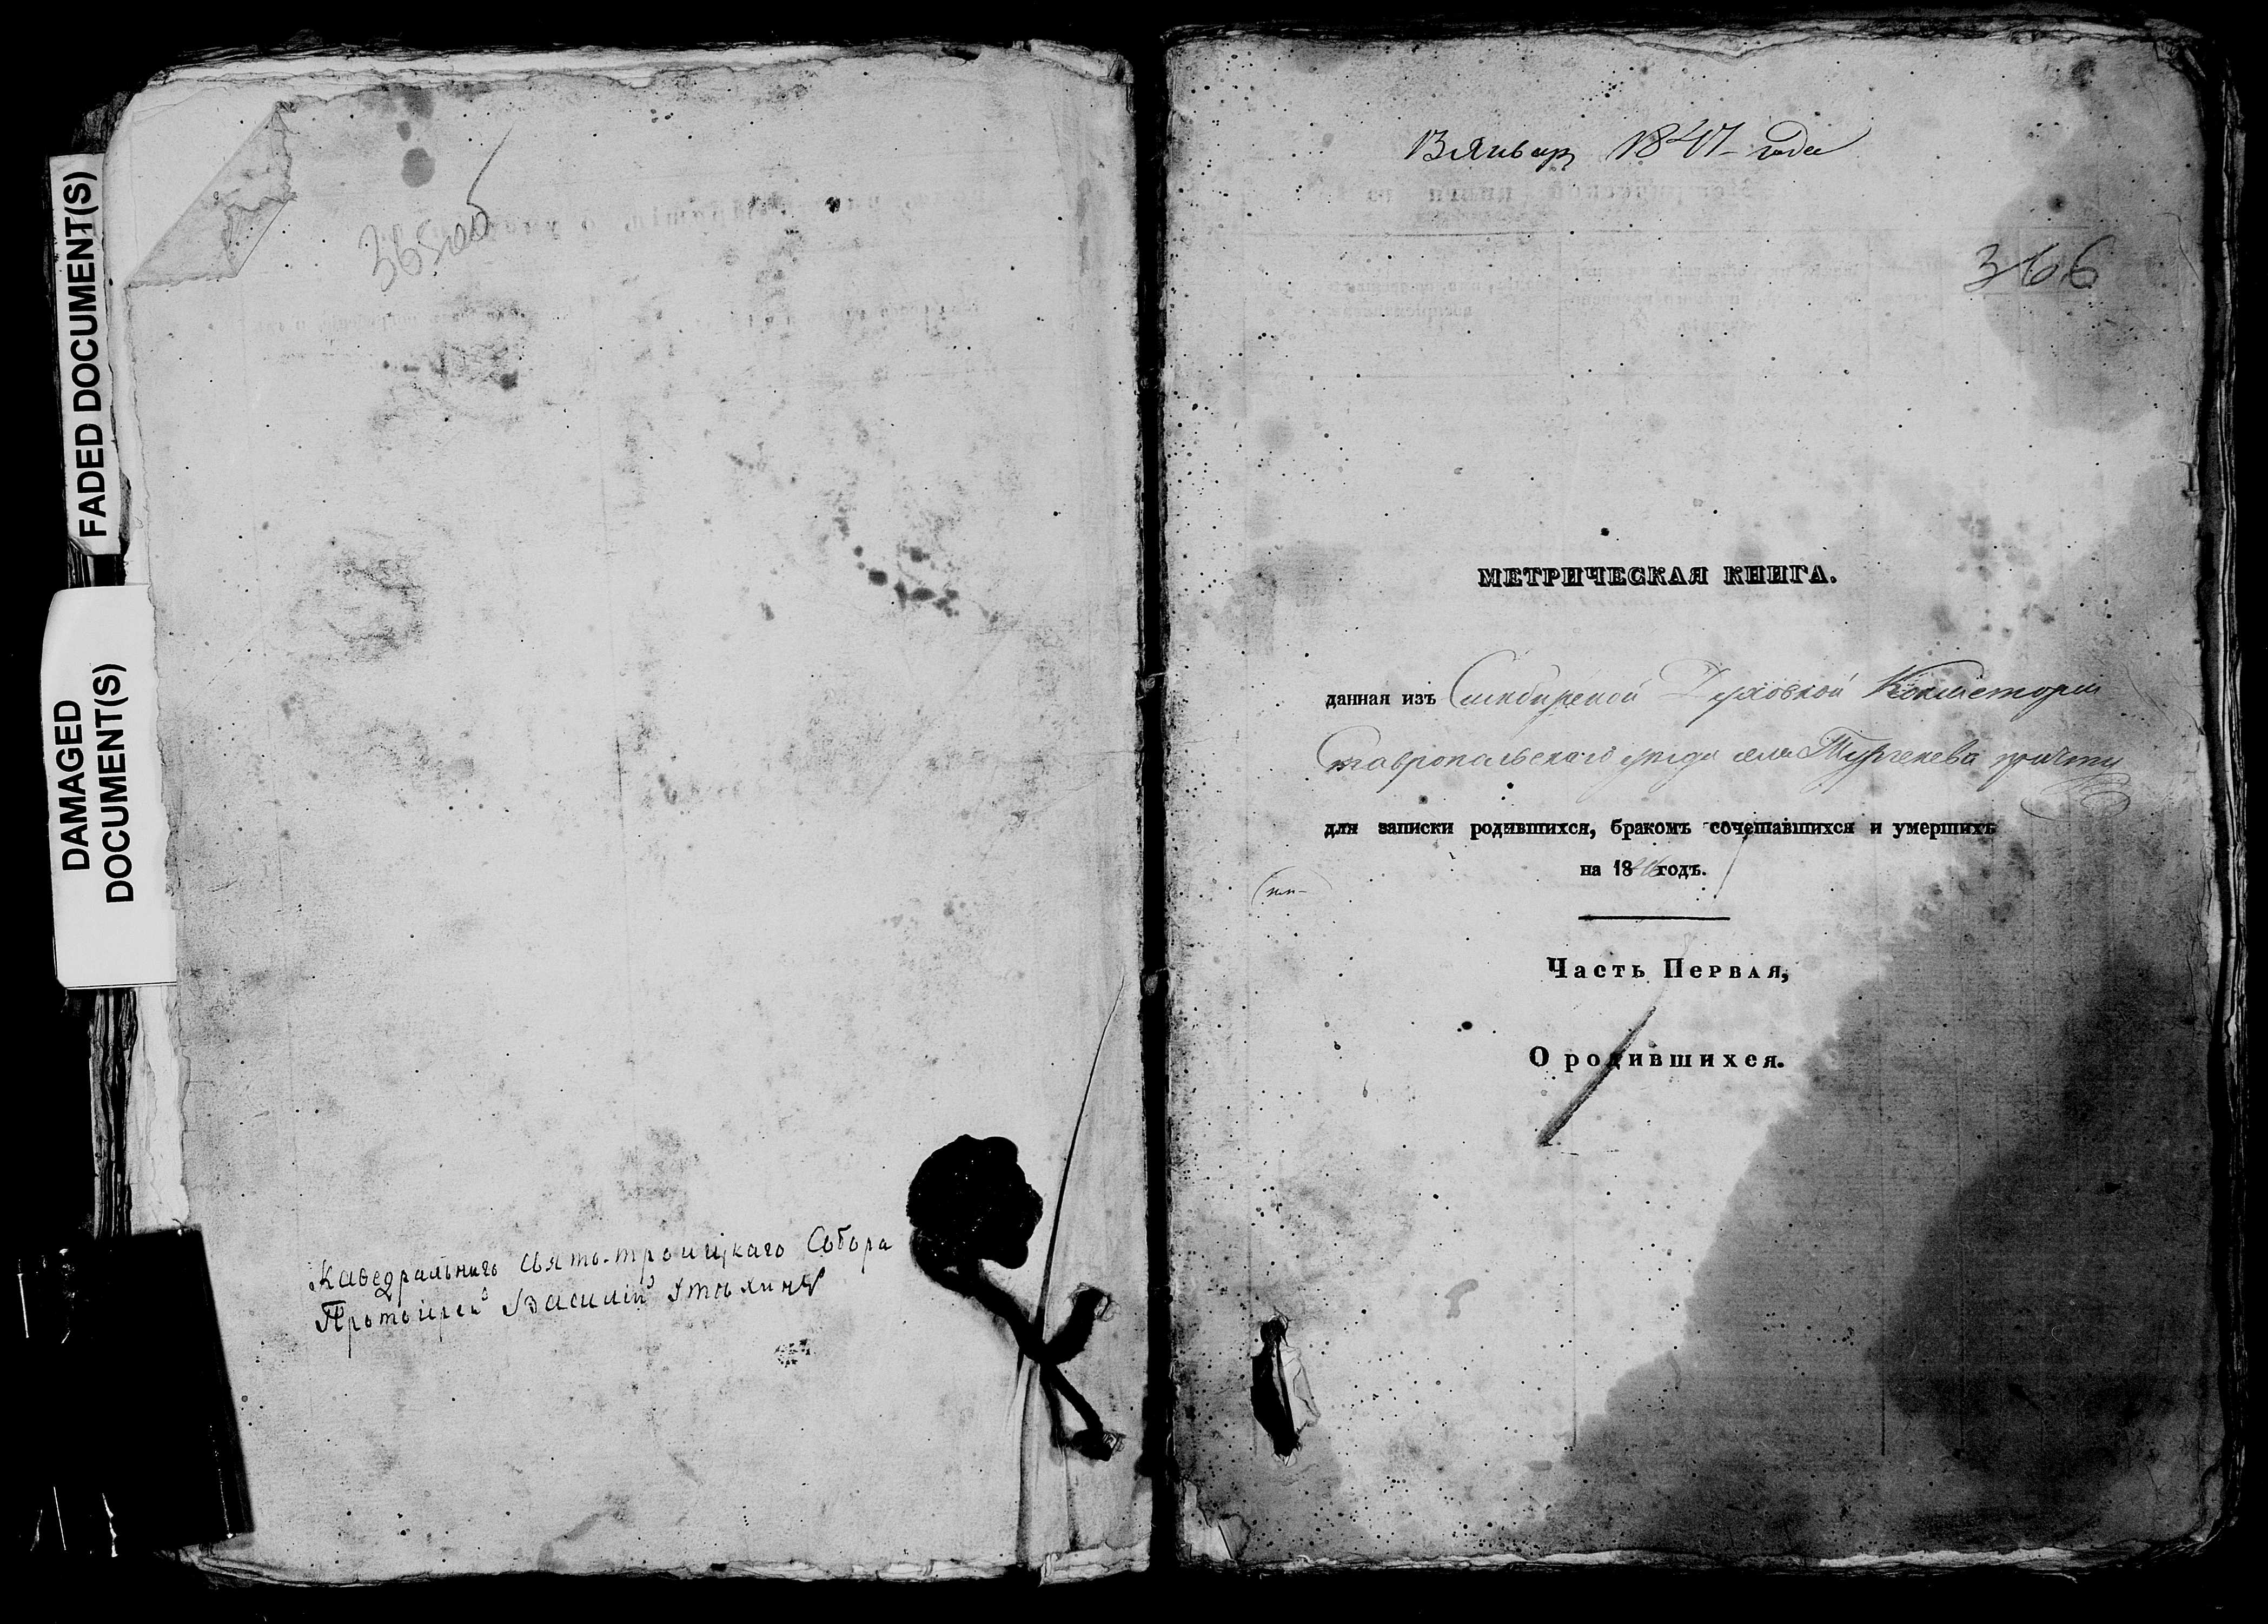 FADED DOCUMENT(S)
DAMAGED
DOCUMENT(S)
36500
Каѳедральнаго Свято-троицкаго Собора
Протоіерей Василій Утѣхинъ
13 Январ 1847 года
366
МЕТРИЧЕСКАЯ КНИГА.
данная изъ Симбирской Духовной Консисторіи
Ставропольскаго уѣзда села Тургенева причту
для записки родившихся, бракомъ сочетавшихся и умершихъ
на 1846 годъ.
Часть Первая,
О родившихся.